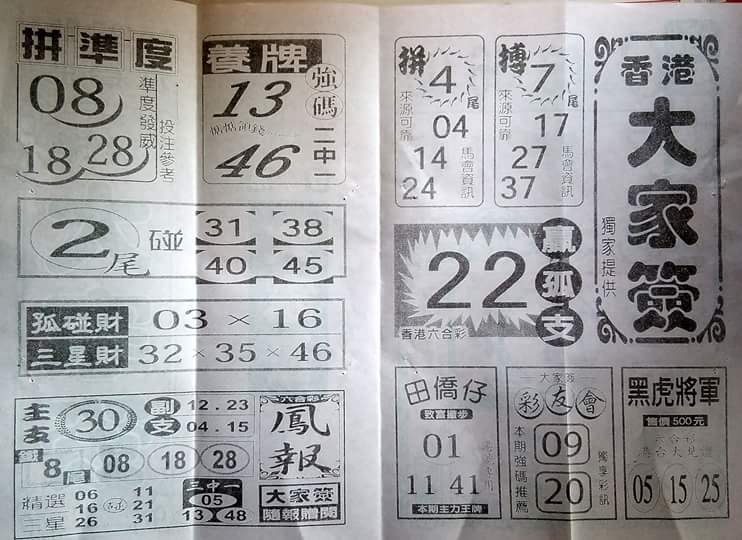 香港
大家簽
獨家提供
拼
4尾
來源可靠
04
14
24
馬會資訊
搏
7尾
來源可靠
17
27
37
馬會資訊
22
贏孤支
香港六合彩
田僑仔
致富撇步
01
11 41
本期主力王牌
大家簽
彩友會
本期強碼推薦
09
20
獨享彩訊
黑虎將軍
售價500元
六合彩
05 15 25
拼準度
08
18 28
準度發威
投注參考
養牌
強碼
13
46
二中一
2尾
碰
31 38
40 45
孤碰財 03×16
三星財 32×35×46
主友 30
副支 12.23
04.15
8尾 08 18 28
六合彩
鳳報
精選三星
06 11
16 碰 21
26 31
三中一
05
13 48
大家簽
隨報贈閱